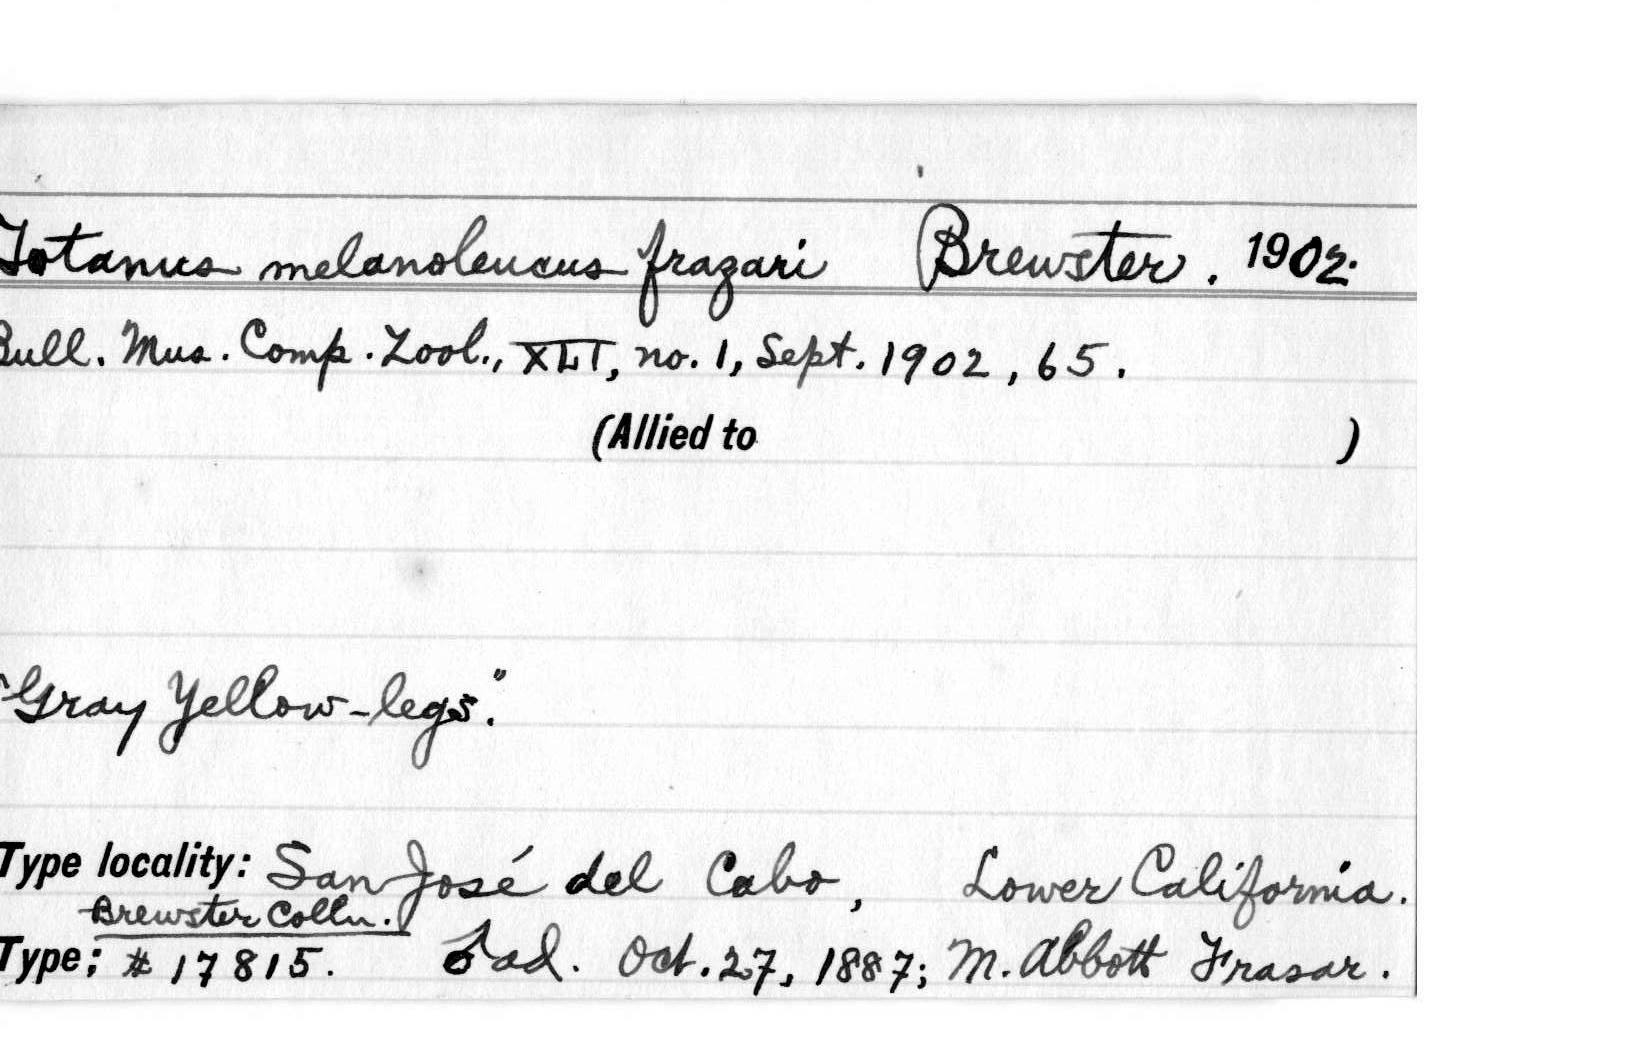 Totanus melanoleucus frazari Brewster. 1902.
Bull. Mus. Comp. Zool., XLI, no. 1, Sept. 1902, 65.
(Allied to )
"Gray Yellow-legs."
Type locality: San José del Cabo, Lower California.
Brewster Colln.
Type; # 17815. ♂ ad. Oct. 27, 1887; M. Abbott Frasar.